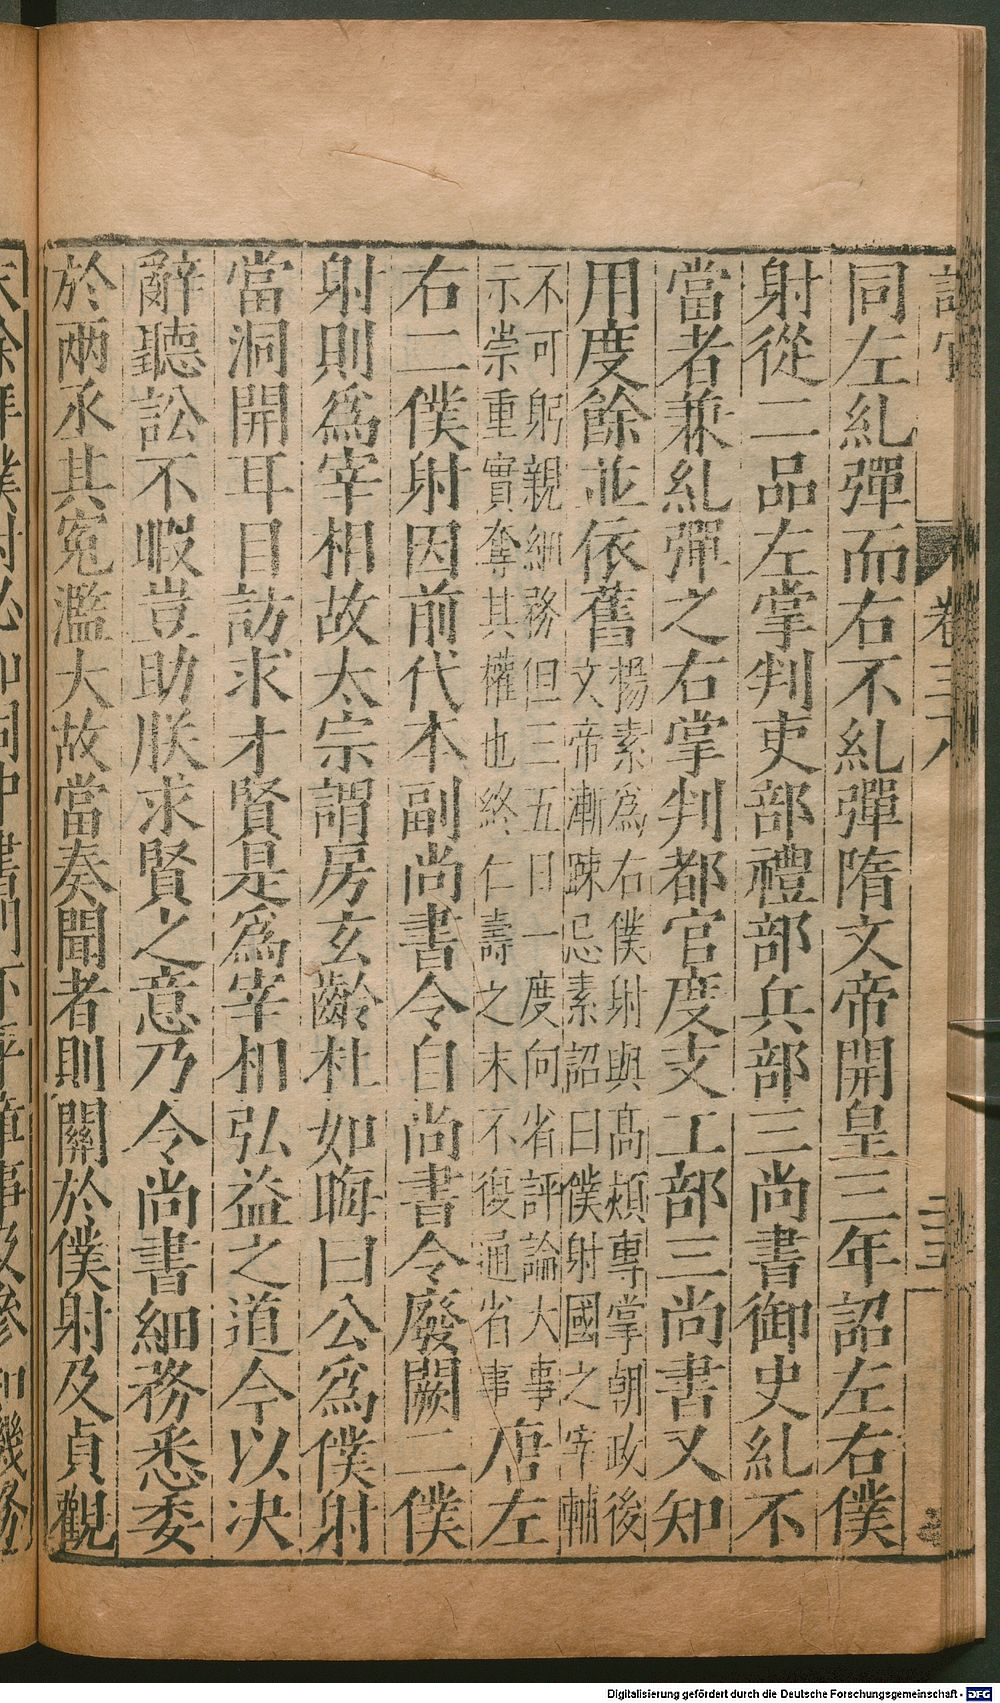 卷三八
二五
同左糺彈而右不糺彈隋文帝開皇三年詔左右僕
射從二品左掌判吏部禮部兵部三尚書御史糺不
當者兼糺彈之右掌判都官度支工部三尚書又知
用度餘並依舊楊素爲右僕射與高熲專掌朝政後
文帝漸踈忌素詔曰僕射國之宰輔
不可躬親細務但三五日一度向省評論大事
示崇重實奪其權也終仁壽之末不復通省事唐左
右二僕射因前代本副尚書令自尚書令廢闕二僕
射則爲宰相故太宗謂房玄齡杜如晦曰公爲僕射
當洞開耳目訪求才賢是爲宰相弘益之道今以决
辭聽訟不暇豈助朕求賢之意乃令尚書細務悉委
於兩丞其冤濫大故當奏聞者則關於僕射及貞觀
Digitalisierung gefördert durch die Deutsche Forschungsgemeinschaft - DFG